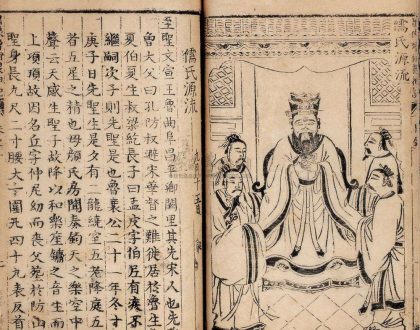 儒氏源流
儒氏源流
至聖文宣王魯曲阜昌平鄉闕里其先宋人也先
曾大父曰孔防叔避宋華督之難徙居於魯生
夏伯夏生叔梁紇長子曰孟皮字伯尼有疾不
繼嗣次子則先聖是也魯襄公二十一年冬十
庚子日先聖生是夕有二龍繞室五老降庭五
者五星之精也毋顏氏房聞奏鈞天之樂空中
聲云天感生聖子故降以和樂笙鏞之音生而
上頂故因名丘字仲尼幼而喪父葬於防山
聖身長九尺二寸腰大十圍凡四十九表反首